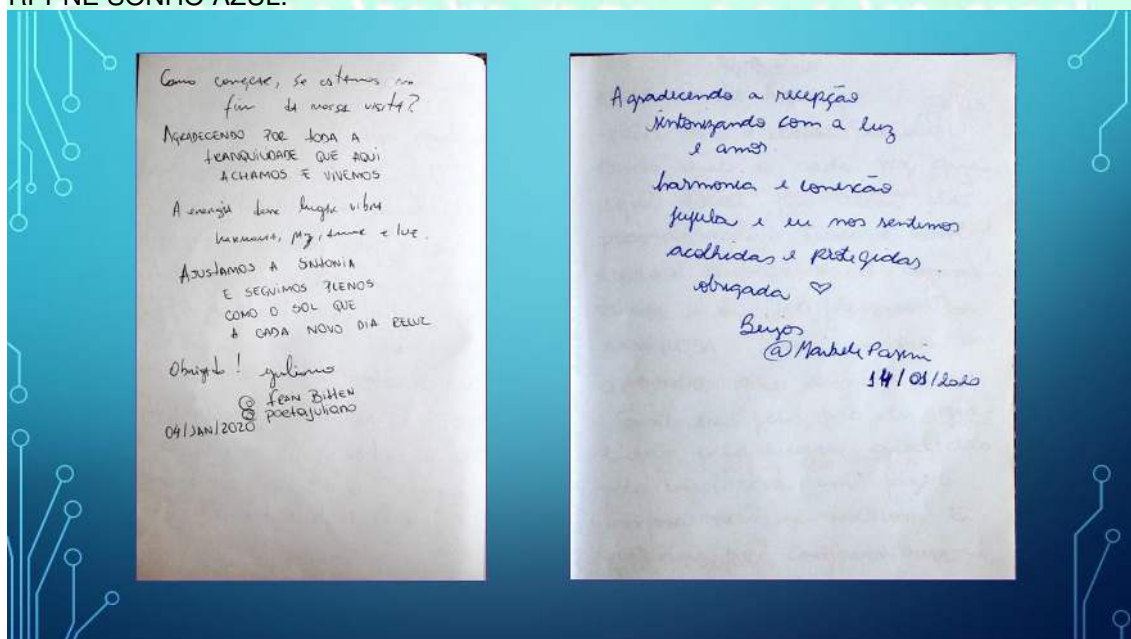 RPPNE SONHO AZUL.
Como começar, se estamos no
fim da nossa visita?
AGRADECENDO POR TODA A
TRANQUILIDADE QUE AQUI
ACHAMOS E VIVEMOS
A energia desse lugar vibra
harmonia, paz, amor e luz.
AJUSTAMOS A SINTONIA
E SEGUIMOS PLENOS
COMO O SOL QUE
A CADA NOVO DIA RELUZ
Obrigado! Juliano
@ FRAN BITTEN
@ poetajuliano
04/JAN/2020
Agradecendo a recepção
sintonizando com a luz
e amor.
harmonia e conexão
jujuba e eu nos sentimos
acolhidas e protegidas
obrigada ♡
Beijos
@
14/01/2020